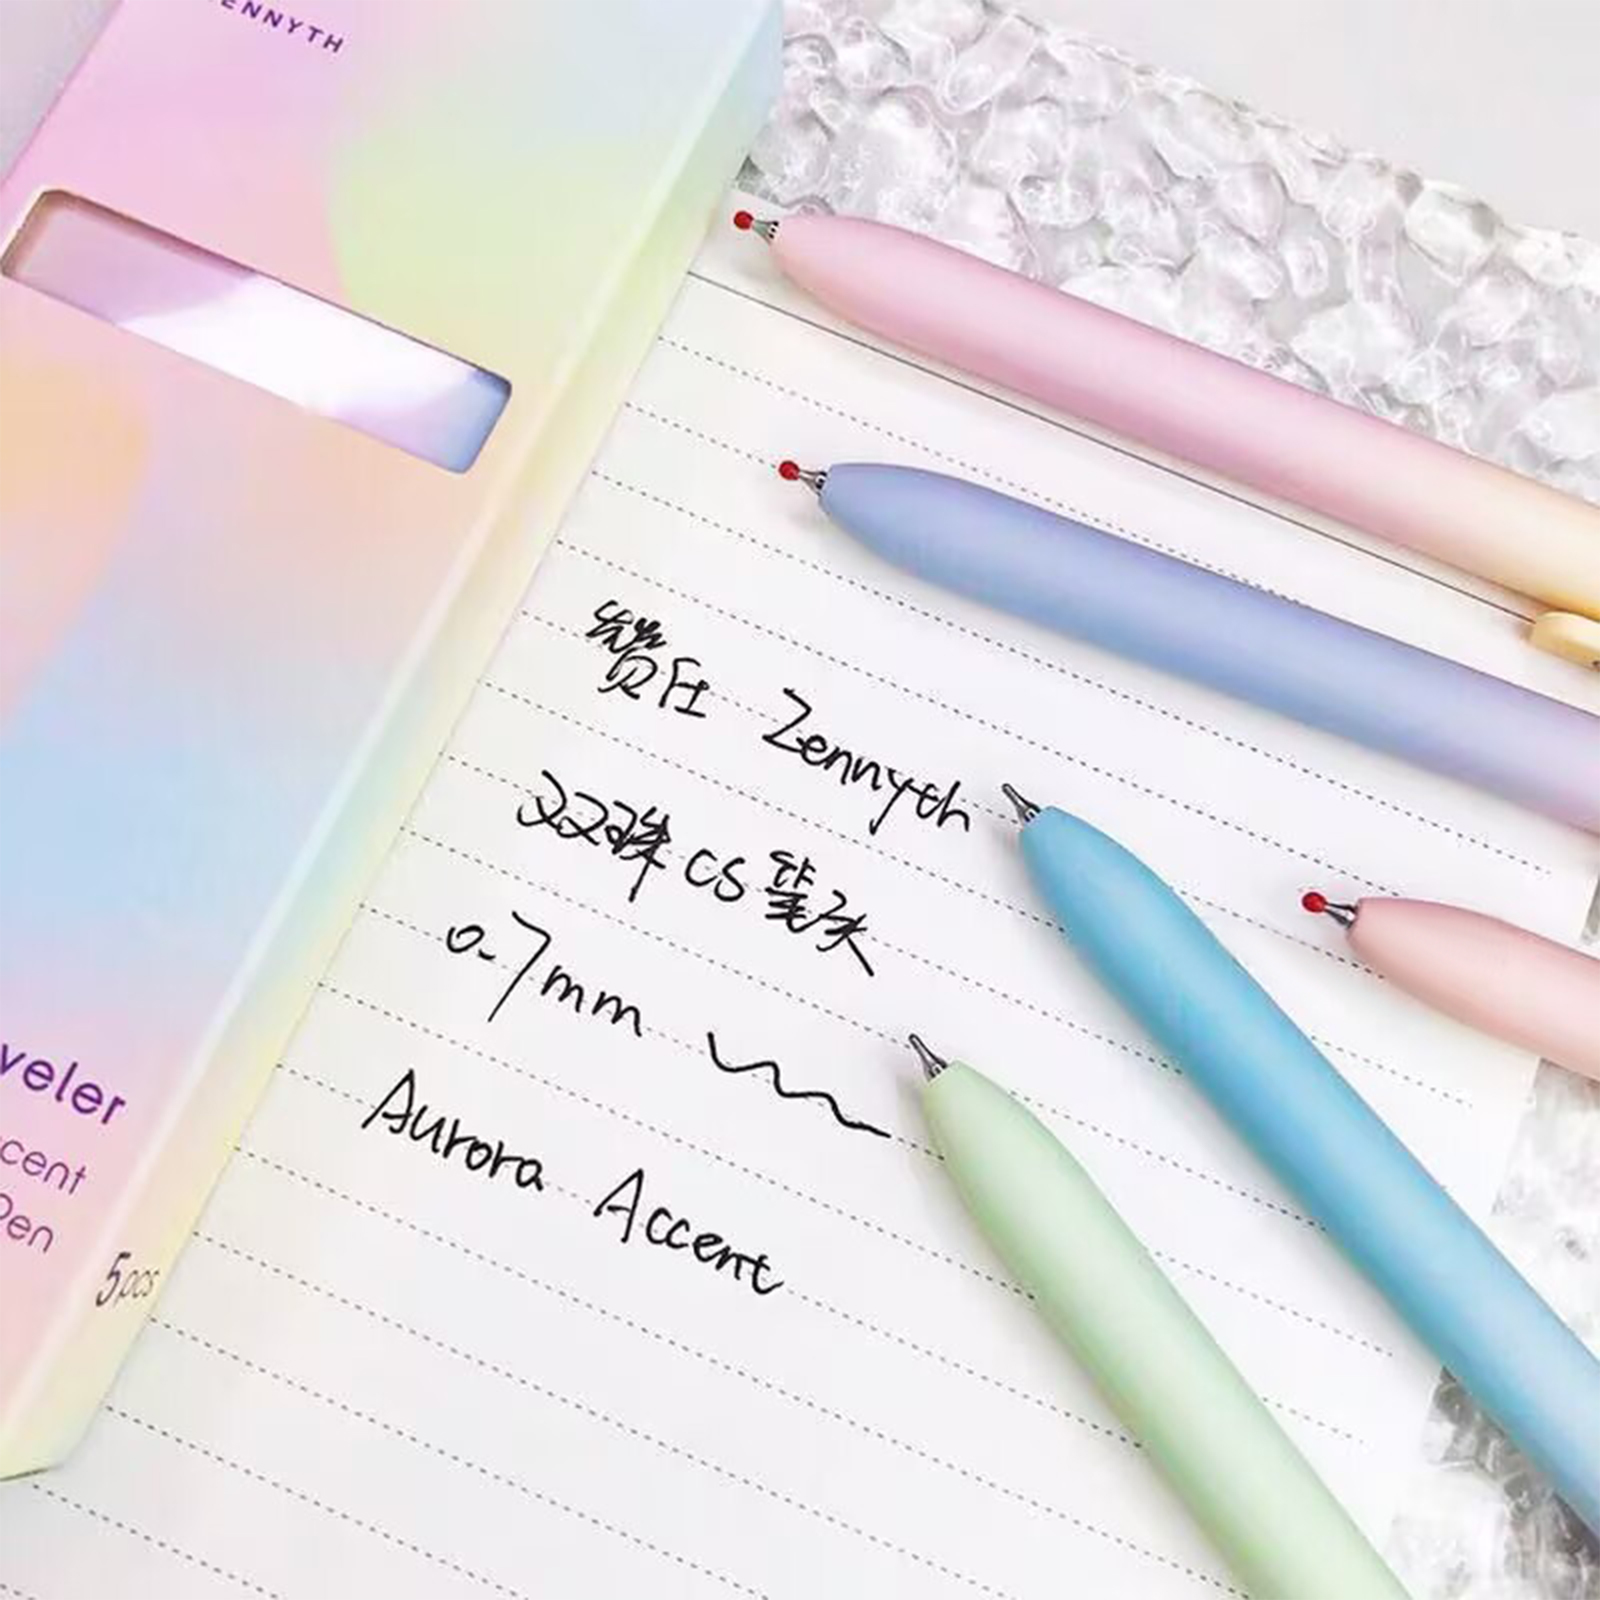 ENNYTH
赞任 Zennyth
双珠 CS 笔头
0.7mm
Aurora Accent
veler
ccent
Pen
5pcs